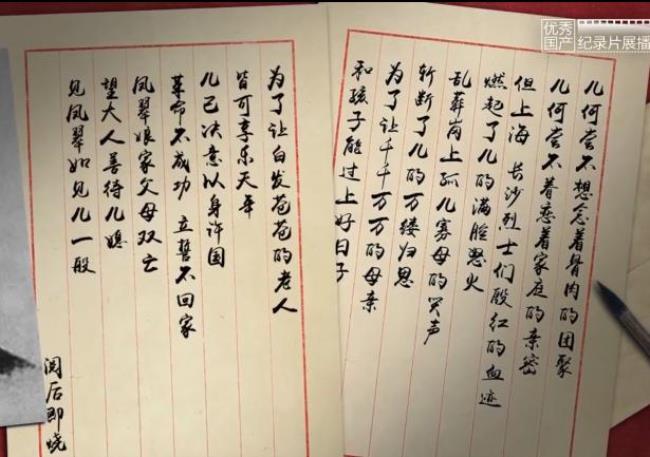 优秀
国产
纪录片展播
儿何尝不想念着骨肉的团聚
儿何尝不眷恋着家庭的亲密
但上海 长沙烈士们殷红的血迹
燃起了儿的满腔怒火
乱葬岗上孤儿寡母的哭声
斩断了儿的万缕归思
为了让千千万万的母亲
和孩子能过上好日子
为了让白发苍苍的老人
皆可享乐天年
儿已决意以身许国
革命不成功 立誓不回家
凤翠娘家父母双亡
望大人善待儿媳
见凤翠如见儿一般
阅后即烧